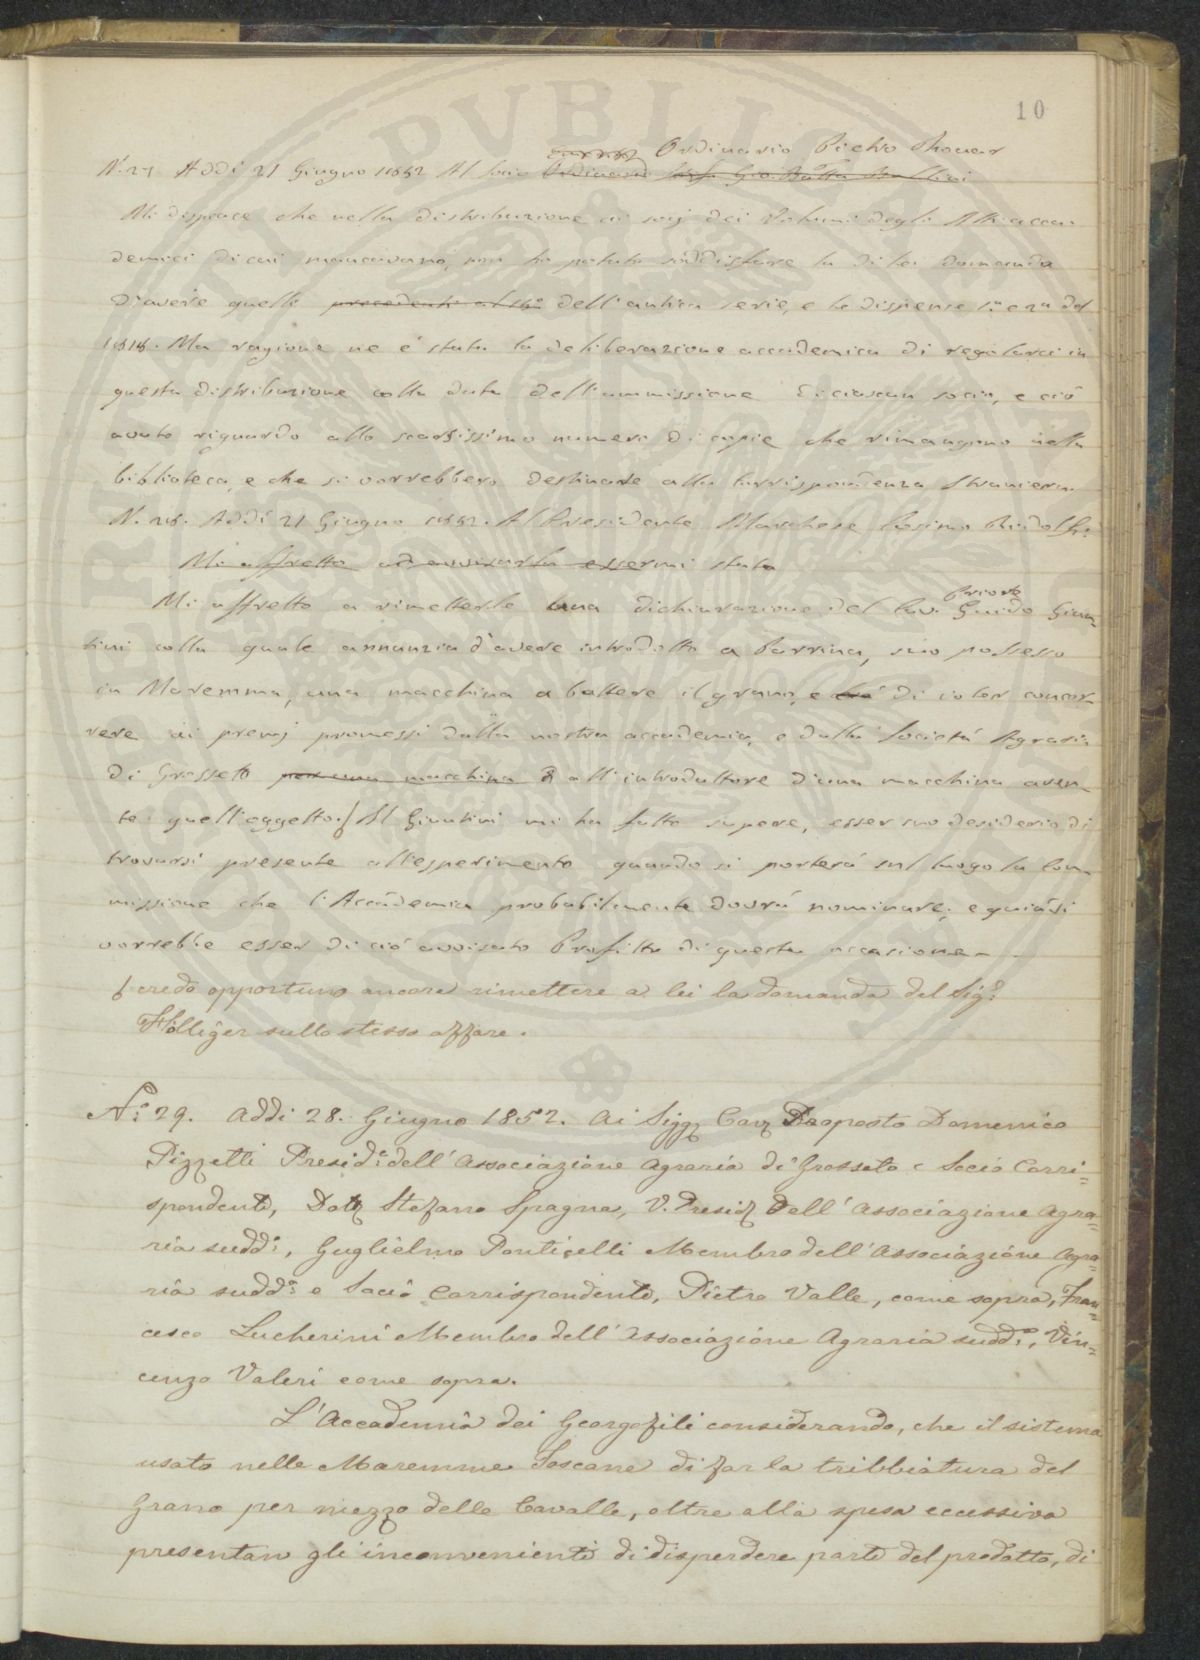 10
Ordinario Pietro Thouar
N. 27 Addì 21 Giugno 1852 Al Socio Ordinario Gio. Batta
Mi dispiace che nella distribuzione ai socj dei Volumi degli Atti acca-
demici di cui mancavano, non ho potuto soddisfare la di lei domanda
d'avere quelli precedenti al dell'antica serie, e le dispense 1.a e 2.a del
1818. Ma ragione ne è stata la deliberazione accademica di regolarci in
questa distribuzione colla data dell'ammissione di ciascun socio, e ciò
avuto riguardo allo scarsissimo numero di copie che rimangono nella
biblioteca, e che si vorrebbero destinate alla Corrispondenza Straniera.
N. 28. Addì 21 Giugno 1852. Al Presidente Marchese Cosimo Ridolfi.
Mi affretto ad avvisarla essermi stata
Mi affretto a rimetterle una dichiarazione del Cav. Priore Guido Giun-
tini colla quale annunzia d'avere introdotto a Parrina, suo possesso
in Maremma, una macchina a battere il grano, e di voler concor-
rere ai premj promessi dalla nostra accademia, e dalla Società Agraria
di Grosseto per una macchina all'introduttore d'una macchina aven-
te quell'oggetto. Il Giuntini mi ha fatto sapere, esser suo desiderio di
trovarsi presente all'esperimento quando si porterà sul luogo la Com-
missione che l'Accademia probabilmente dovrà nominare; e quindi
vorrebbe esser di ciò avvisato Profitto di questa occasione -
credo opportuno ancora rimettere a lei la domanda del Sig.r
Hölliger sullo stesso affare.
N.o 29. Addi 28. Giugno 1852. Ai Sigg Cav Proposto Domenico
Pizzetti Presid.e dell'Associazione Agraria di Grosseto e Socio Corri=
spondente, Dott Stefano Spagna, V. Presid Dell'Associazione Agra=
ria sudd.a, Guglielmo Ponticelli Membro dell'Associazione Agra=
ria sudd.a e Socio Corrispondente, Pietro Valle, come sopra, Fran=
cesco Lucherini Membro dell'Associazione Agraria sudd.a, Vin=
cenzo Valeri come sopra.
L'Accademia dei Georgofili considerando, che il sistema
usato nelle Maremme Toscane di far la tribbiatura del
Grano per mezzo delle Cavalle, oltre alla spesa eccessiva
presentan gli inconvenienti di disperdere parte del prodotto, di